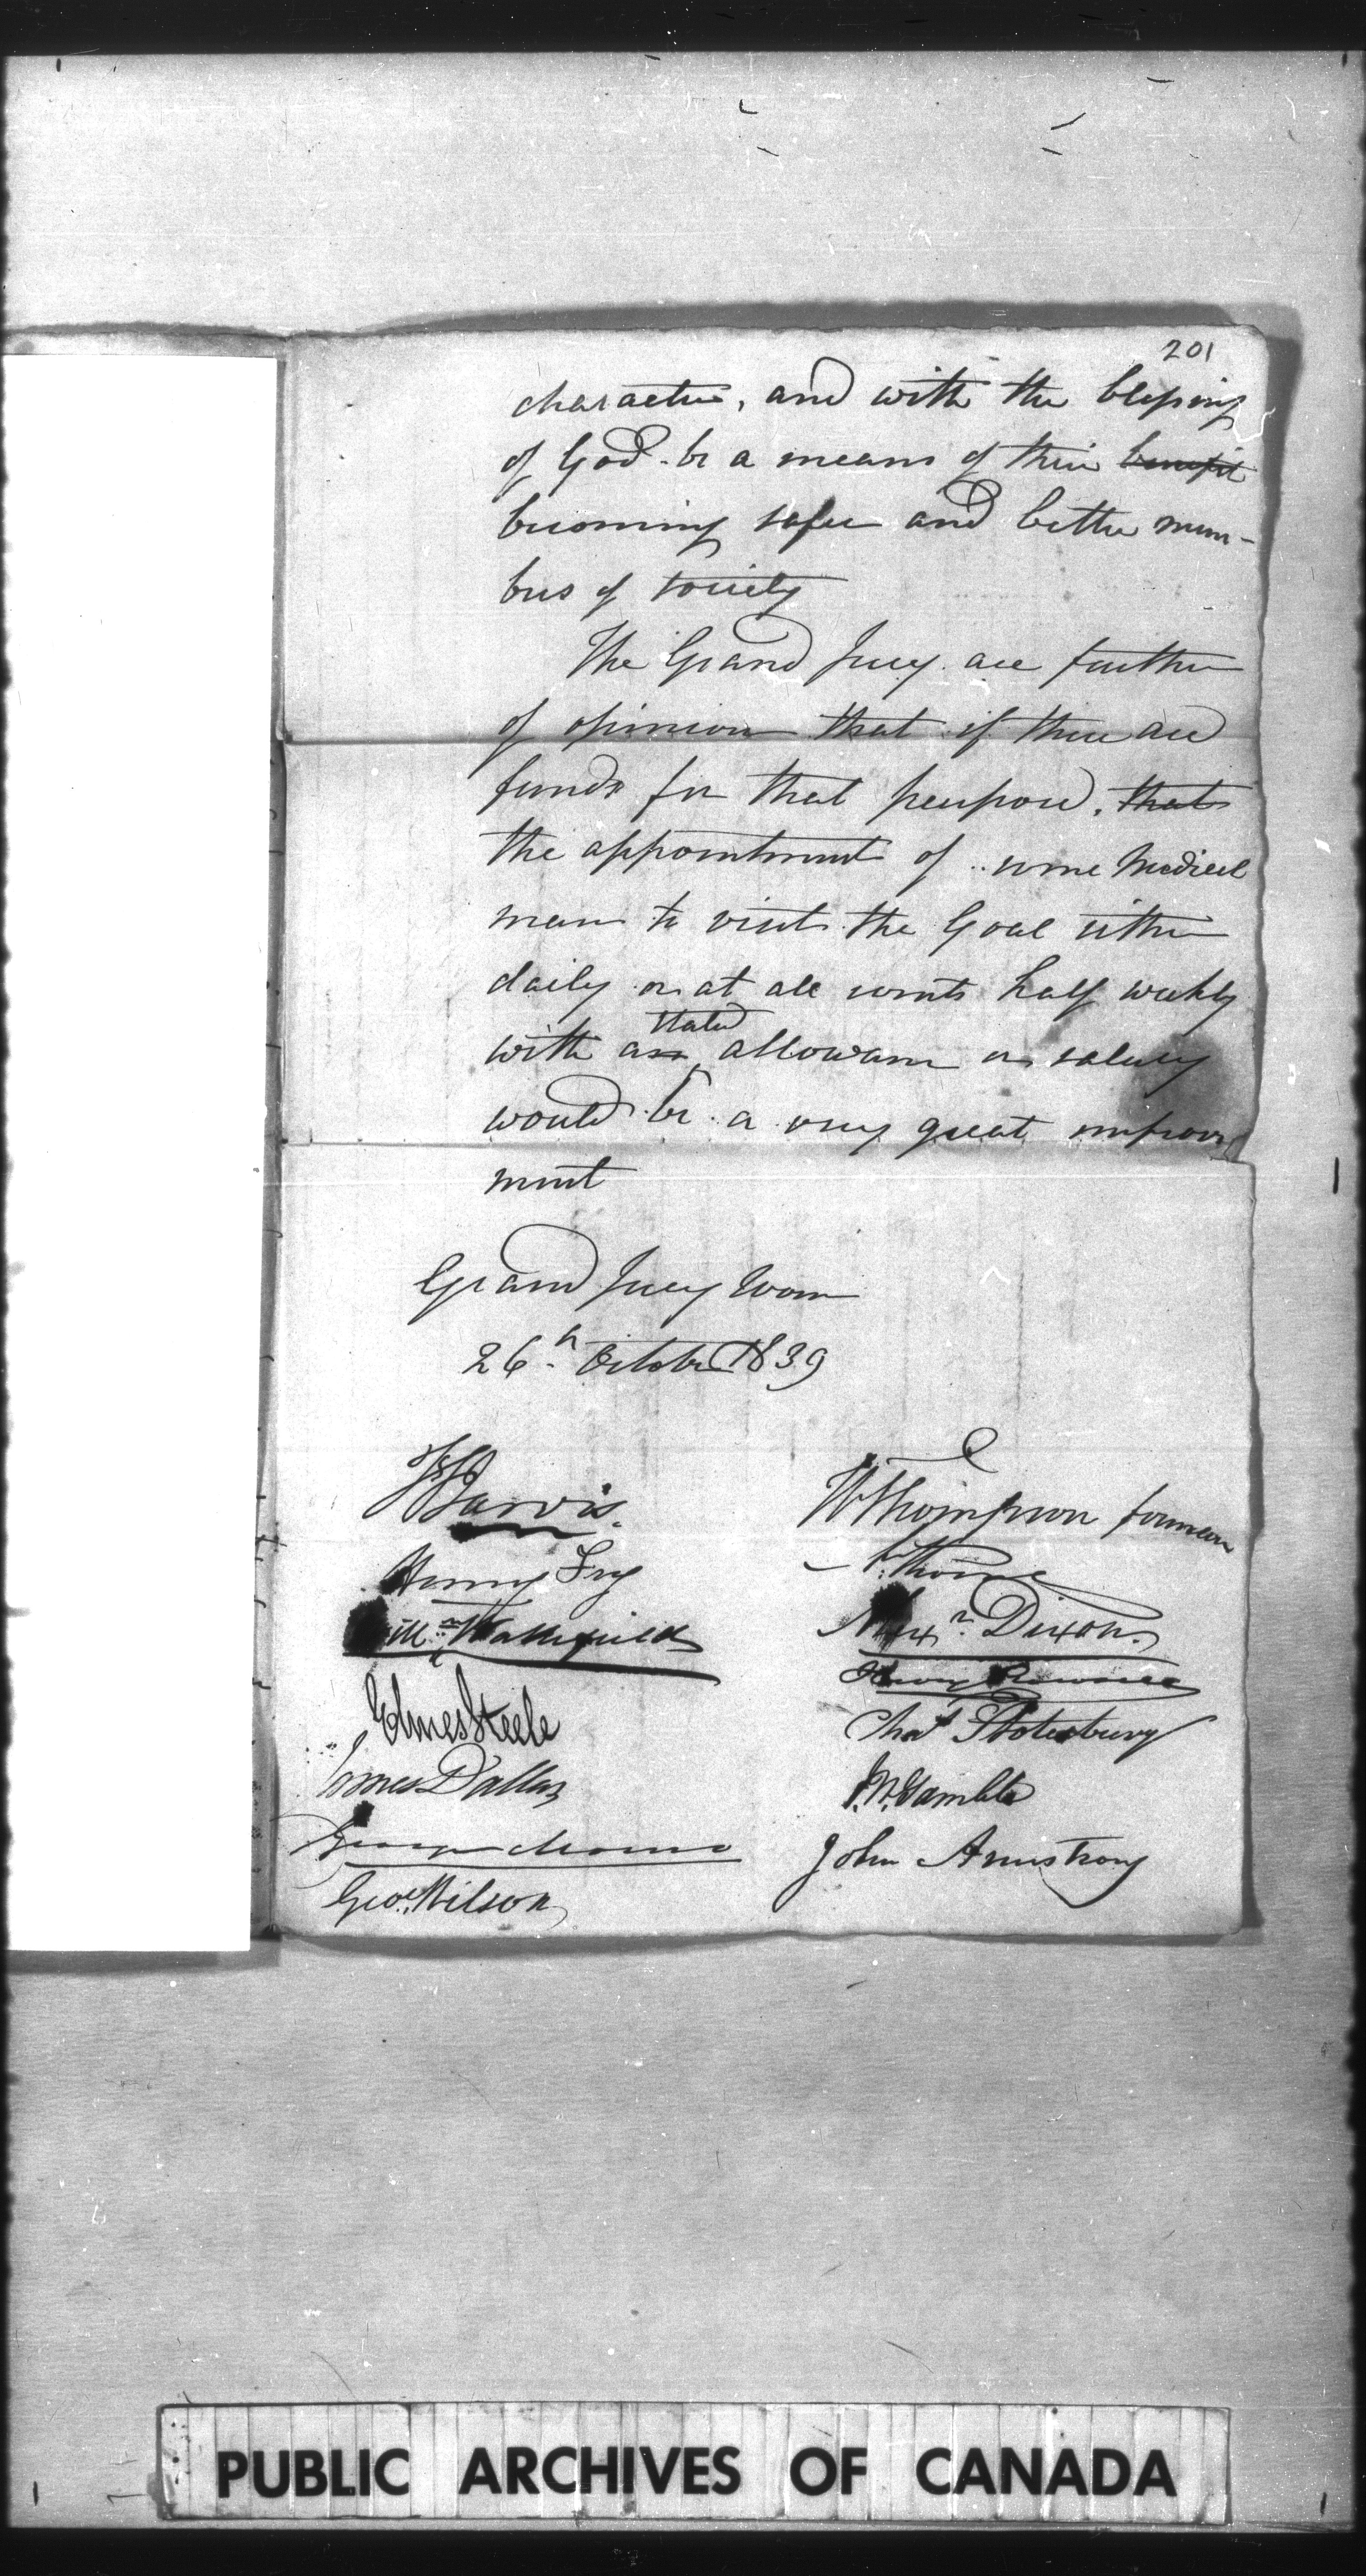 201
character, and with the blessing
of God be a means of their benefit
becoming safer and better mem-
bers of society
The Grand Jury are further
of opinion that if there are
funds for that purpose, that
the appointment of some Medical
man to visit the Goal either
daily or at all events half weekly
stated
with an allowance or salary
would be a very great improve
ment
Grand Jury Room
26th October 1839
Jarvis.
WThompson foreman
Henry Fry
Thorne
Willm Wakefield
Alexr Dixon.
Elmes Steele
Henry Rowsell
James Dallas
Chas Stotesbury
George Monro
J.W. Gamble
Geo. Wilson
John Armstrong
PUBLIC ARCHIVES OF CANADA